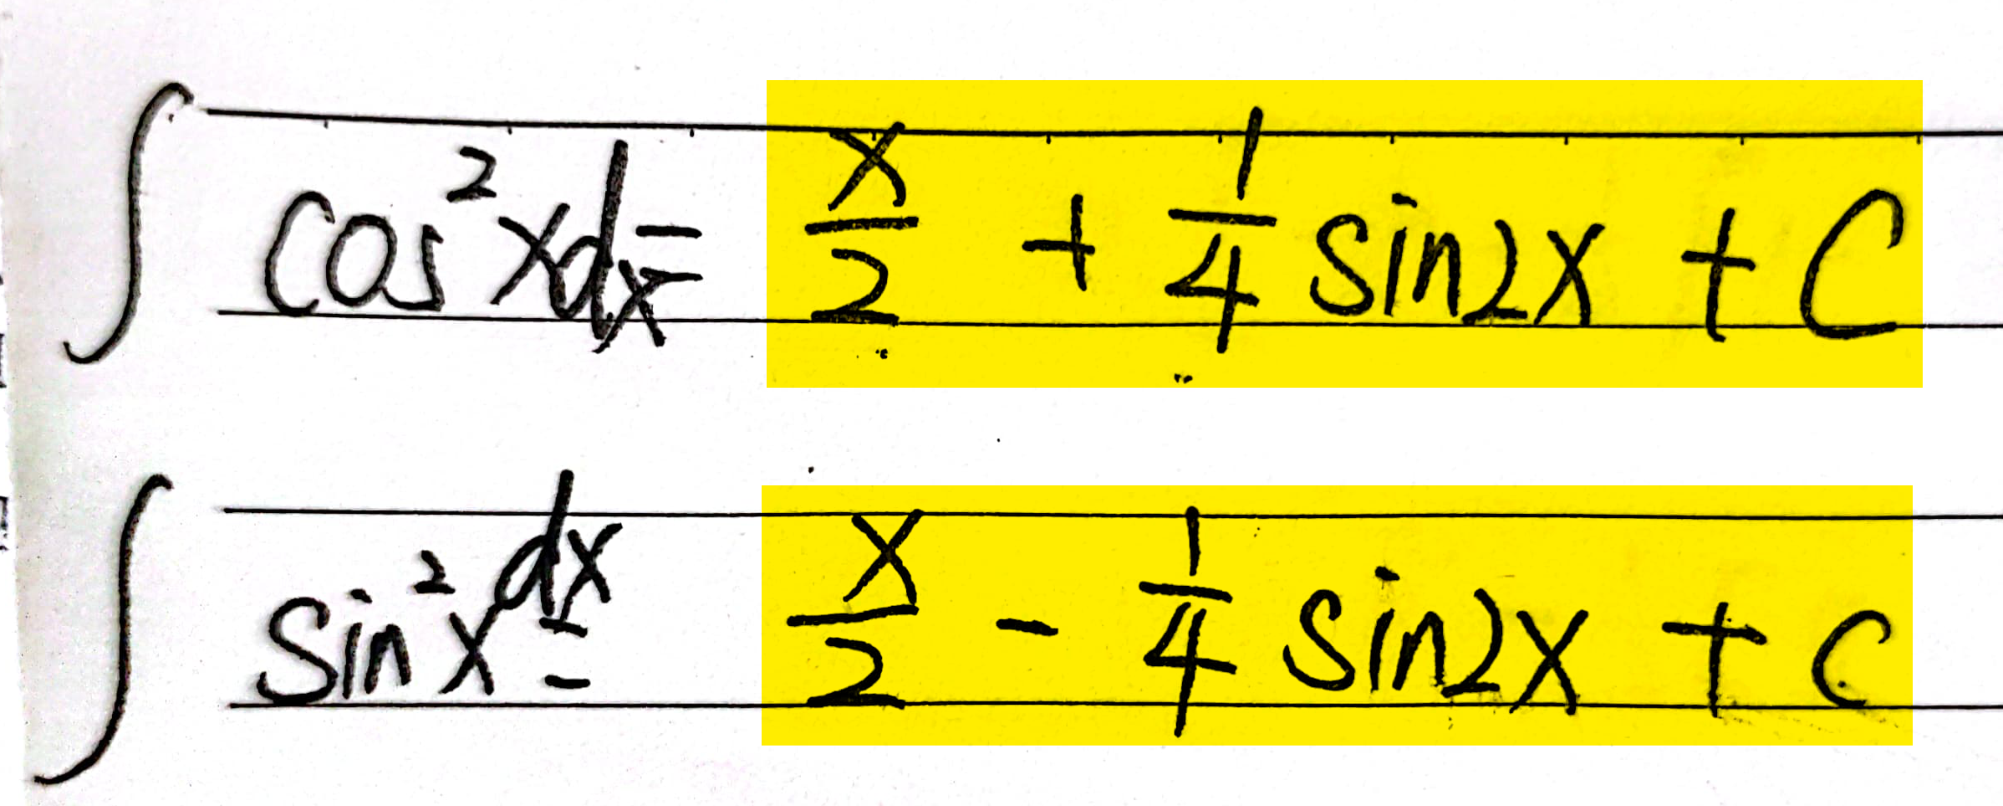 ∫ cos²xdx = x/2 + 1/4 sin2x + C
∫ sin²x dx = x/2 - 1/4 sin2x + C